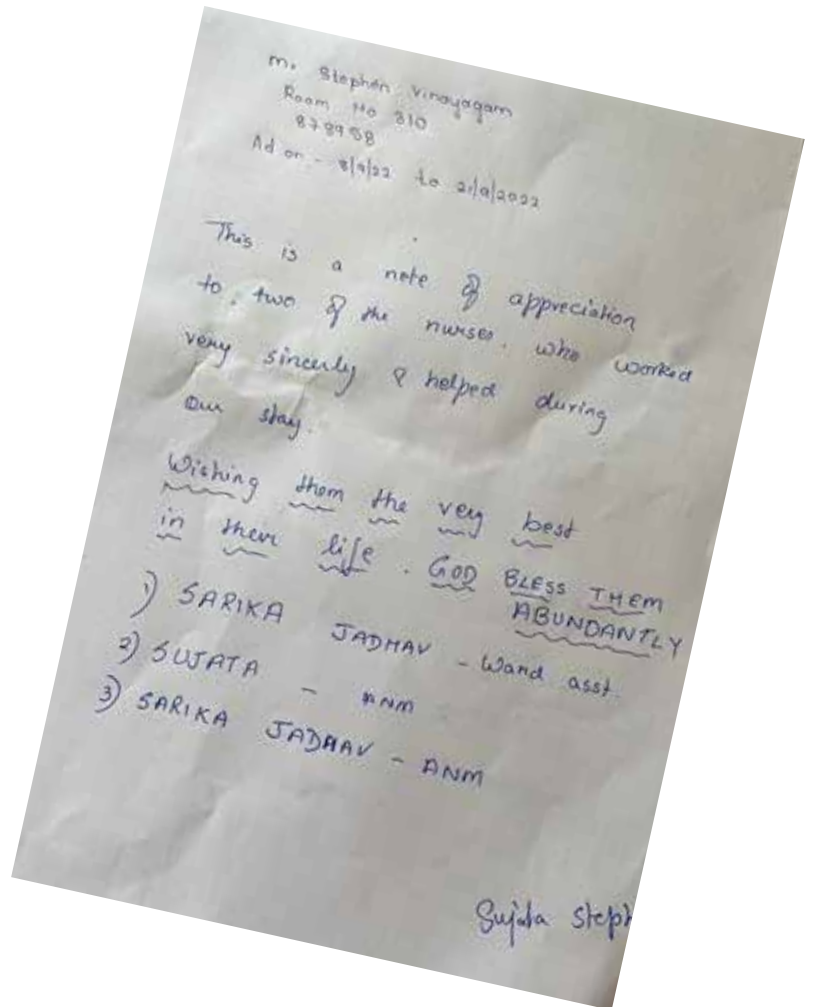 M. Stephen Vinayagam
Room No 310
878958
Ad on - 8/9/22 to 21/9/2022
This is a note of appreciation
to. two of the nurses. who worked
very sincerly & helped during
our stay.
Wishing them the very best
in their life. GOD BLESS THEM
ABUNDANTLY
1) SARIKA JADHAV - Ward asst.
2) SUJATA - ANM
3) SARIKA JADHAV - ANM
Sujata Steph